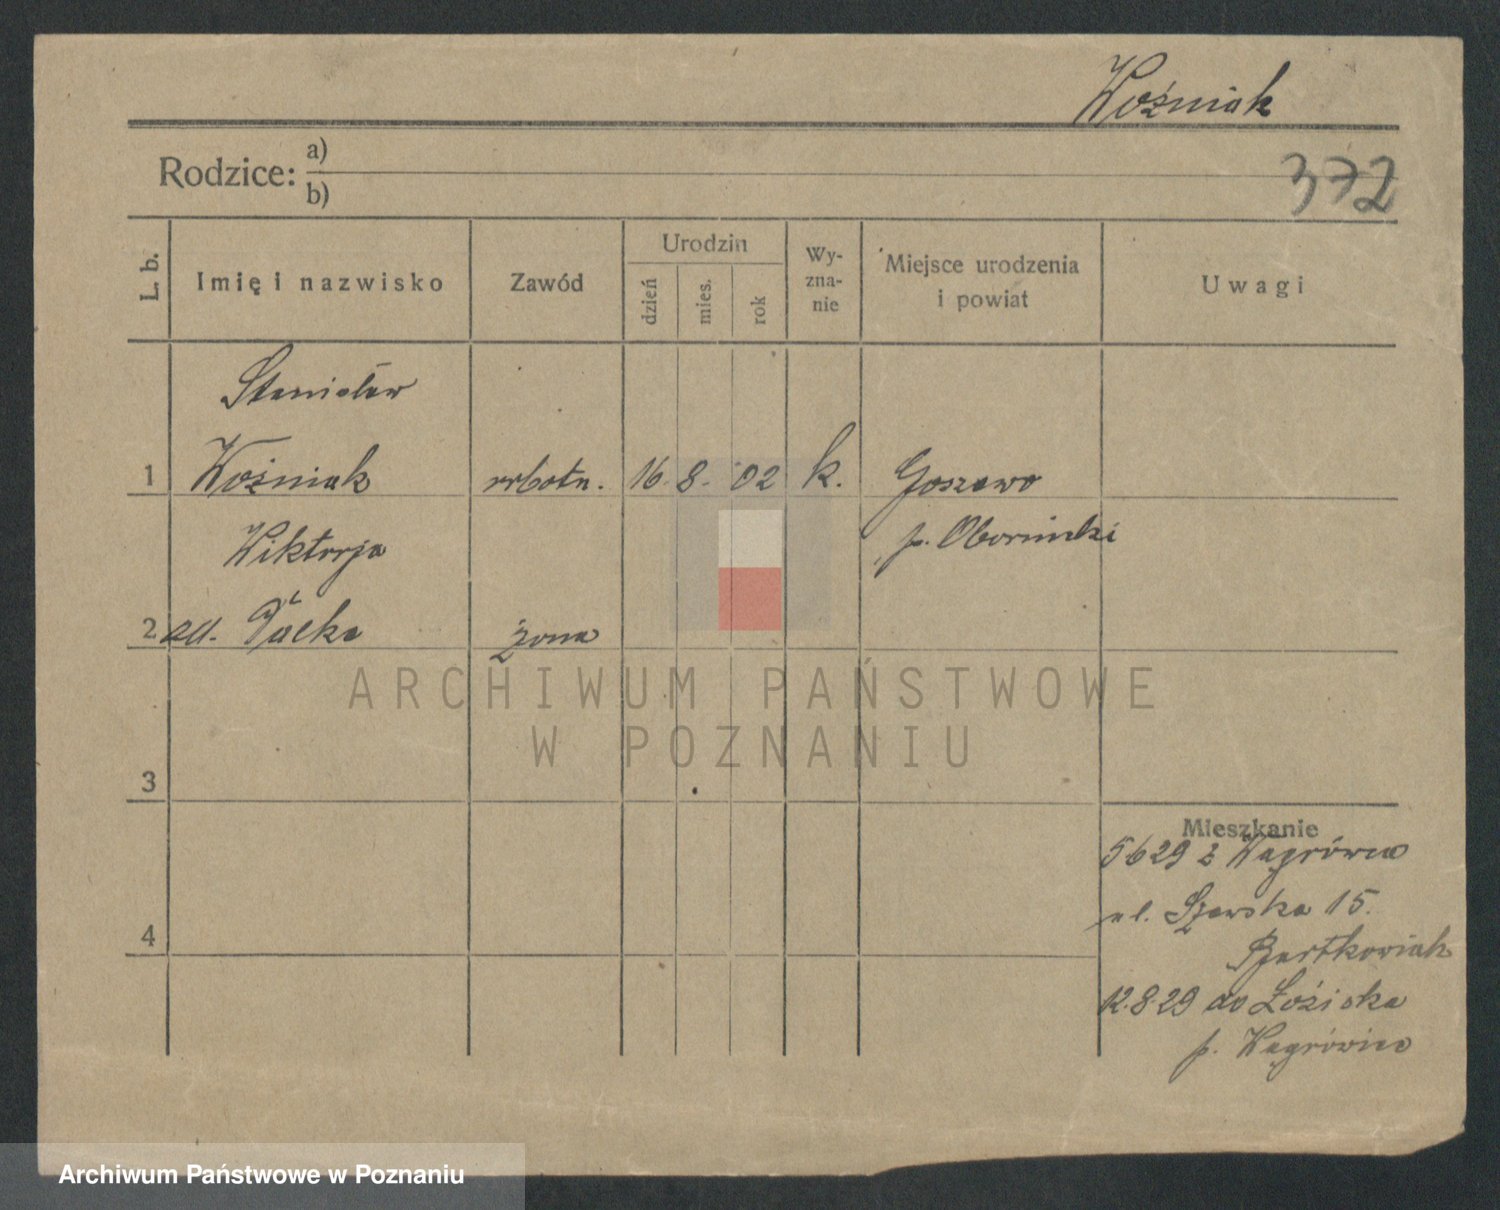 Woźniak
Rodzice: a)
b)
372
L. b.
Imię i nazwisko
Zawód
Urodzin
dzień
mies.
rok
Wy-
zna-
nie
Miejsce urodzenia
i powiat
Uwagi
Stanisław
1 Woźniak robotn. 16. 8. 02 k. Goszewo
p. Obornicki
Wiktorja
2 żona
3
4
Mieszkanie
5 6 29 z Wągrówca
ul. 15.
Bartkowiak
12.8.29 do
p. Wągrówiec
ARCHIWUM PAŃSTWOWE
W POZNANIU
Archiwum Państwowe w Poznaniu